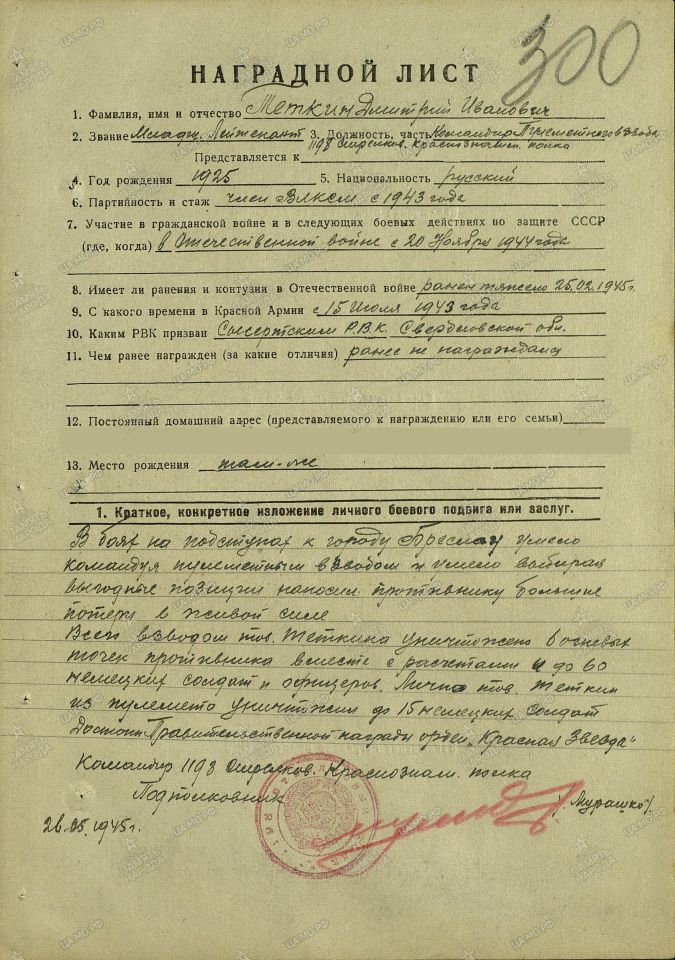 300
НАГРАДНОЙ ЛИСТ
1. Фамилия, имя и отчество Теткин Дмитрий Иванович
2. Звание Младш. Лейтенант 3. Должность, часть Командир Пулеметного взвода
1198 Стрелков. Краснознамен. полка
Представляется к
4. Год рождения 1925 5. Национальность русский
6. Партийность и стаж член ВЛКСМ с 1943 года
7. Участие в гражданской войне и в следующих боевых действиях по защите СССР
(где, когда) в Отечественной войне с 20 Ноября 1944 года
8. Имеет ли ранения и контузии в Отечественной войне ранен тяжело 25.02.1945г.
9. С какого времени в Красной Армии с 15 Июля 1943 года
10. Каким РВК призван Сысертским Р.В.К. Свердловской обл.
11. Чем ранее награжден (за какие отличия) ранее не награждался
12. Постоянный домашний адрес (представляемого к награждению или его семьи)
13. Место рождения там-же
1. Краткое, конкретное изложение личного боевого подвига или заслуг.
В боях на подступах к городу Бреслау умело
командуя пулеметным взводом и умело выбирая
выгодные позиции наносил противнику большие
потери в живой силе
Всего взводом тов. Теткина уничтожено 6 огневых
точек противника вместе с расчетами и до 60
немецких солдат и офицеров. Лично тов. Теткин
из пулемета уничтожил до 15 немецких солдат
Достоин Правительственной награды орден „Красная Звезда"
Командир 1198 Стрелков. Краснознам. полка
Подполковник /Мурашко/
26.05.1945г.